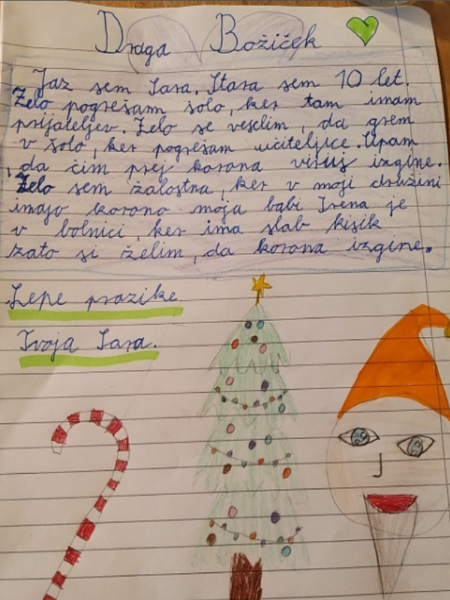 Draga Božiček
Jaz sem Sara. Stara sem 10 let.
Zelo pogrešam šolo, ker tam imam
prijateljev. Zelo se veselim, da grem
v šolo, ker pogrešam učiteljice. Upam
, da čim prej korona viruj izgine.
Zelo sem žalostna, ker v moji družini
imajo korono moja babi Irena je
v bolnici, ker ima slab kisik
zato si želim, da korona izgine.
Lepe prazike
Tvoja Sara.